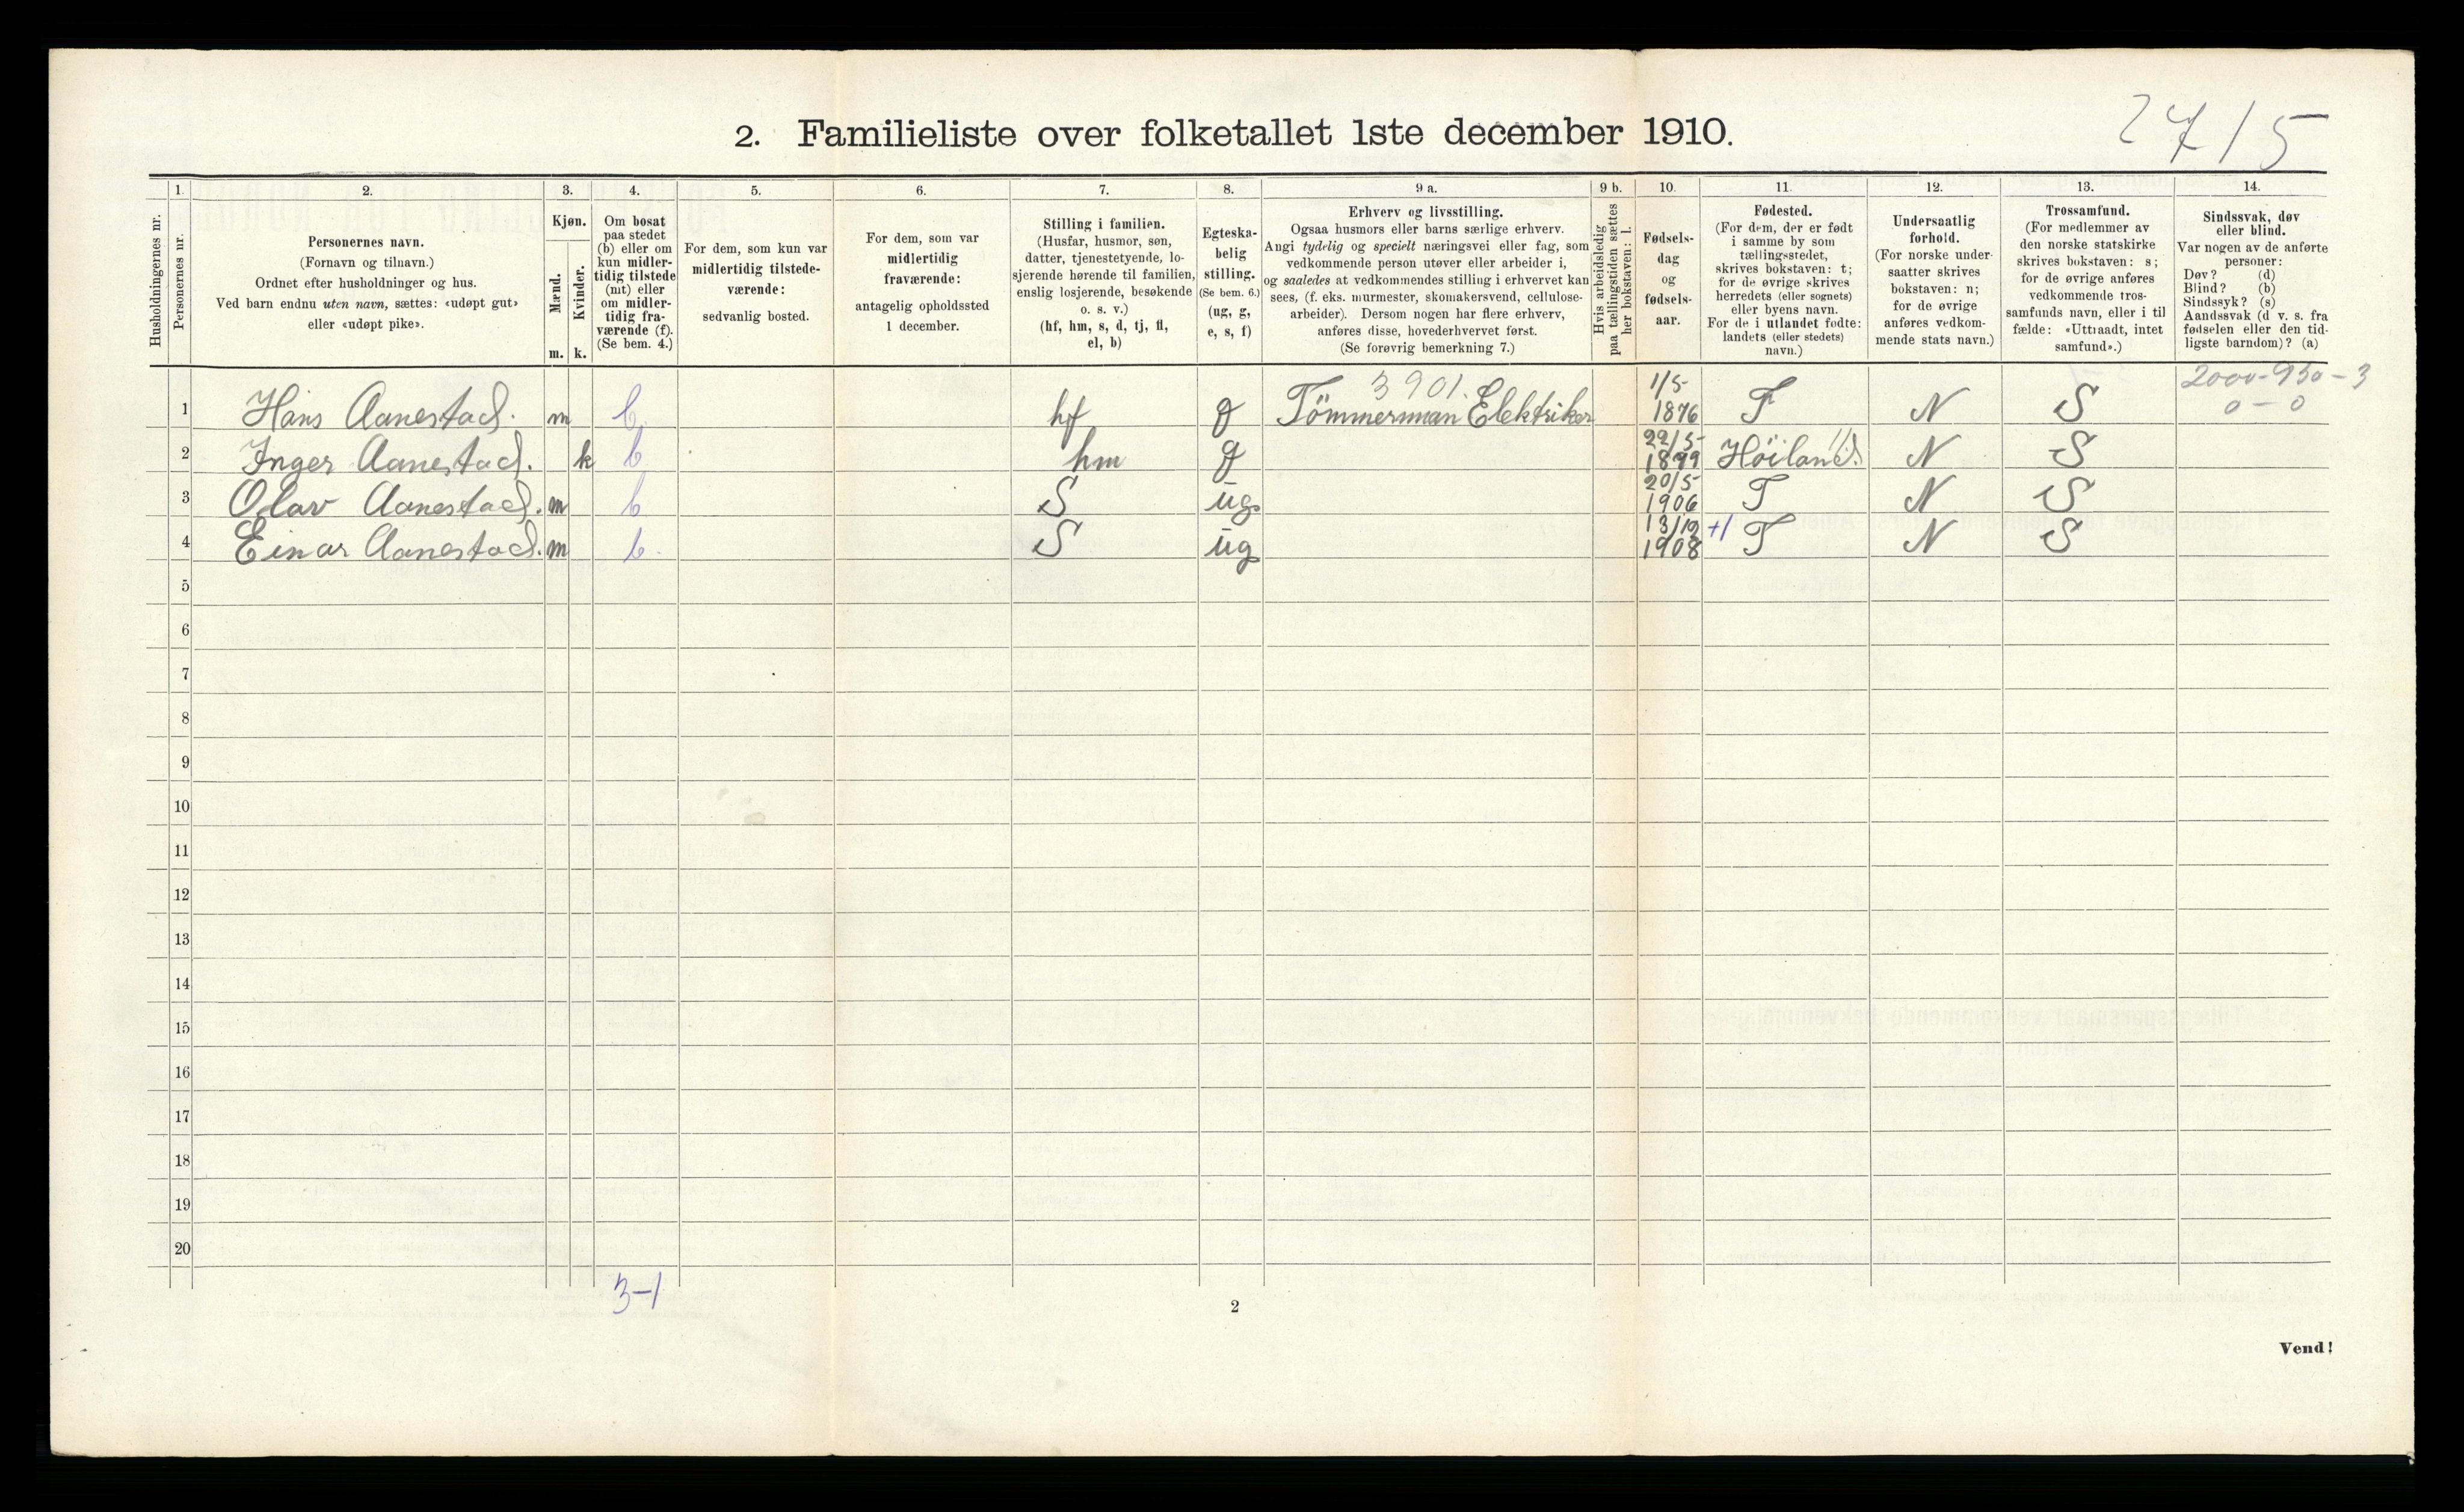 2. Familieliste over folketallet 1ste december 1910.
2715
Husholdningernes nr.
1.
Personernes nr.
2.
Personernes navn.
(Fornavn og tilnavn.)
Ordnet efter husholdninger og hus.
Ved barn endnu uten navn, sættes: «udøpt gut»
eller «udøpt pike».
3.
Kjøn.
Mænd.
Kvinder.
m.
k.
4.
Om bosat
paa stedet
(b) eller om
kun midler-
tidig tilstede
(mt) eller
om midler-
tidig fra-
værende (f).
(Se bem. 4.)
5.
For dem, som kun var
midlertidig tilstede-
værende:
sedvanlig bosted.
6.
For dem, som var
midlertidig
fraværende:
antagelig opholdssted
1 december.
7.
Stilling i familien.
(Husfar, husmor, søn,
datter, tjenestetyende, lo-
sjerende hørende til familien,
enslig losjerende, besøkende
o. s. v.)
(hf, hm, s, d, tj, fl,
el, b)
8.
Egteska-
belig
stilling.
(Se bem. 6.)
(ug, g,
e, s, f)
9 a.
Erhverv og livsstilling.
Ogsaa husmors eller barns særlige erhverv.
Angi tydelig og specielt næringsvei eller fag, som
vedkommende person utøver eller arbeider i,
og saaledes at vedkommendes stilling i erhvervet kan
sees, (f. eks. murmester, skomakersvend, cellulose-
arbeider). Dersom nogen har flere erhverv,
anføres disse, hovederhvervet først.
(Se forøvrig bemerkning 7.)
9 b.
Hvis arbeidsledig
paa tællingstiden sættes
her bokstaven: l.
10.
Fødsels-
dag
og
fødsels-
aar.
11.
Fødested.
(For dem, der er født
i samme by som
tællingsstedet,
skrives bokstaven: t;
for de øvrige skrives
herredets (eller sognets)
eller byens navn.
For de i utlandet fødte:
landets (eller stedets)
navn.)
12.
Undersaatlig
forhold.
(For norske under-
saatter skrives
bokstaven: n;
for de øvrige
anføres vedkom-
mende stats navn.)
13.
Trossamfund.
(For medlemmer av
den norske statskirke
skrives bokstaven: s;
for de øvrige anføres
vedkommende tros-
samfunds navn, eller i til
fælde: «Uttraadt, intet
samfund».)
14.
Sindssvak, døv
eller blind.
Var nogen av de anførte
personer:
Døv? (d)
Blind? (b)
Sindssyk? (s)
Aandssvak (d v. s. fra
fødselen eller den tid-
ligste barndom)? (a)
3901. 1/5 2000-950-3
1 Hans Aanestad. m b hf g Tömmerman Elektriker 1876 T N S 0-0
22/5
2 Inger Aanestad. k b hm g 1879 Höiland. N S
20/5
3 Olav Aanestad. m b S ug. 1906 T N S
13/12
4 Einar Aanestad. m b. S ug 1908 +1 T N S
5
6
7
8
9
10
11
12
13
14
15
16
17
18
19
20
3-1
2
Vend!